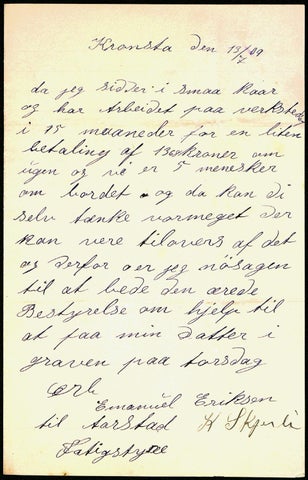 Kronsta den 13/7 09
da jeg sidder i smaa kaar
og har Arbeidet paa verksted
i 15 maaneder for en liten
betaling af 13 kroner om
ugen og vi er 5 menesker
om bordet og da kan di
selv tænke vormeget der
kan vere tilovers af det
og derfor er jeg nösagen
til at bede den ærede
Bestyrelse om hjelp til
at faa min datter i
graven paa torsdag
Erb
Emanuel Eriksen
til aarstad K Skjerli
Fatigstyre